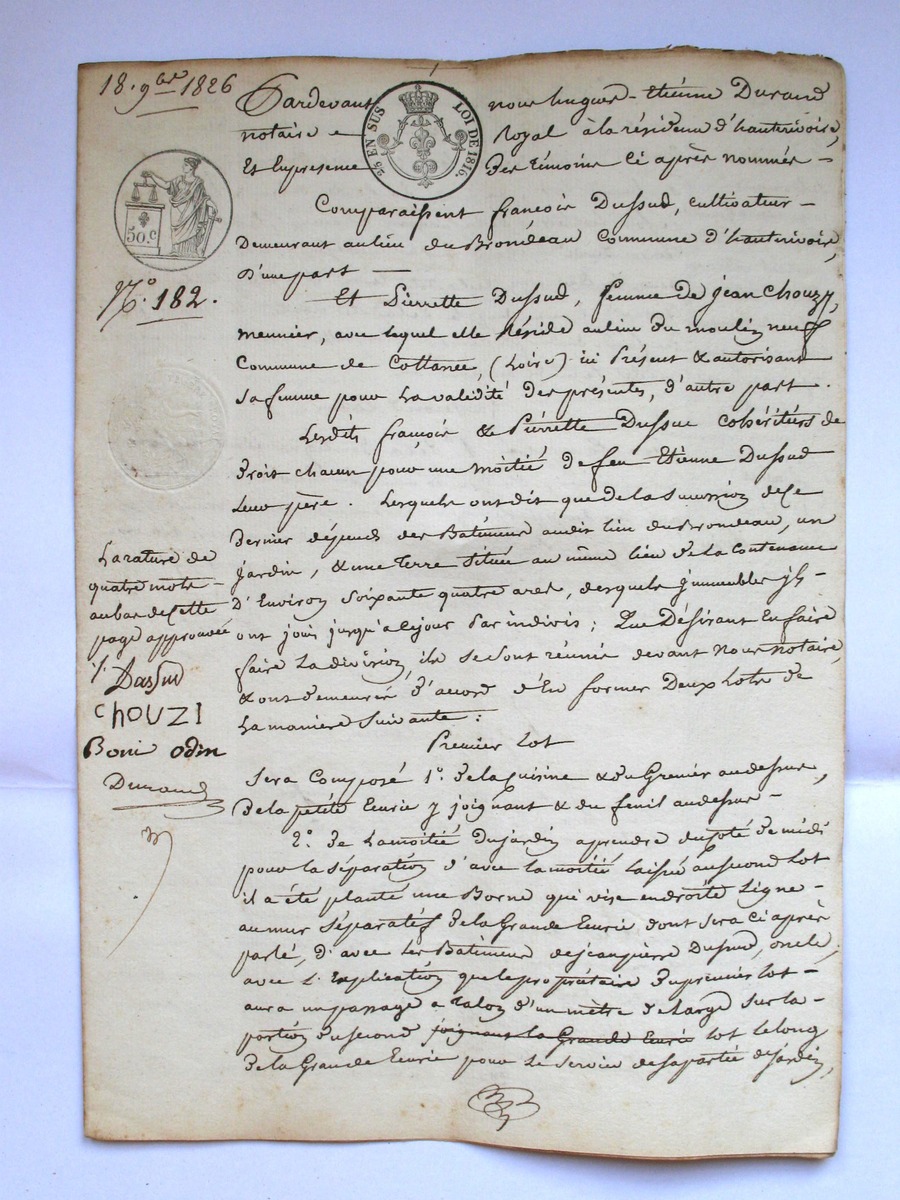 18. 9bre 1826
25 EN SUS
LOI DE 1816.
50.c
N°. 182.
Pardevant nous hugues-Etienne Durand
notaire royal à la résidence d'hauterivoire,
Et En presence des témoins ci après nommés -
Comparaissent françois Dussud, cultivateur -
Demeurant au lieu du Brondeau commune d'hauterivoire,
D'une part —
Et Pierrette Dussud, femme de jean Chouzy,
meunier, avec lequel elle Réside au lieu du moulin neuf
Commune de Cottance, (Loire) ici Présent & autorisant
sa femme pour La validité des présentes, d'autre part.
Lesdits françois & Pierrette Dussud cohéritiers de
droit chacun pour une moitié de feu Etienne Dussud
Leur père. Lesquels ont dit que de la succession de Ce
Dernier dépend des Batimens audit lieu du Brondeau, un
jardin, & une Terre située au même lieu de La Contenance
D'Environ soixante quatre ares, desquels jmmeubles jls -
ont joui jusqu'à ce jour Par indivis; Que Désirant En faire
faire La division, ils se sont réunis devant Nous notaire,
& ont demeuré d'accord d'En former Deux Lots de
La manière suivante :
Premier Lot
Sera Composé 1°. de la Cuisine & du Grenier au dessus,
de la petite Ecurie y joignant & du fenil au dessus -
2°. de La moitié du jardin a prendre du côté de midi
pour La séparation d'avec la moitié Laissée au second Lot
il a été planté une Borne qui vise en droite Ligne -
au mur séparatif de la Grande Ecurie dont sera Ci après
parlé, d'avec Les Batimens de jeanpierre Dussud, oncle,
avec L'Explication que le propriétaire du premier Lot -
aura un passage a talon d'un mètre de Large sur la -
portion du second joignant la Grande Ecurie Lot Le long
de la Grande Ecurie pour Le service de sa partie de jardin,
La rature de
quatre mots -
au bas de Cette
page approuvée
Dassud
CHOUZI
Boni odin
Durand